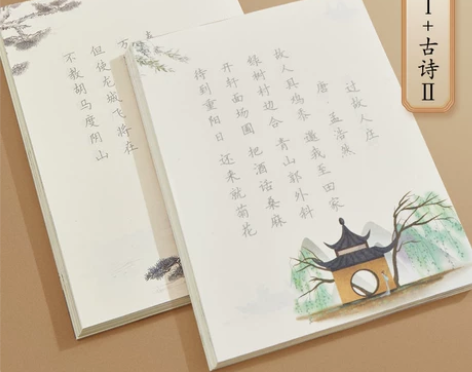 I+古诗II
过故人庄
唐 孟浩然
故人具鸡黍 邀我至田家
绿树村边合 青山郭外斜
开轩面场圃 把酒话桑麻
待到重阳日 还来就菊花
万
但使龙城飞将在
不教胡马度阴山